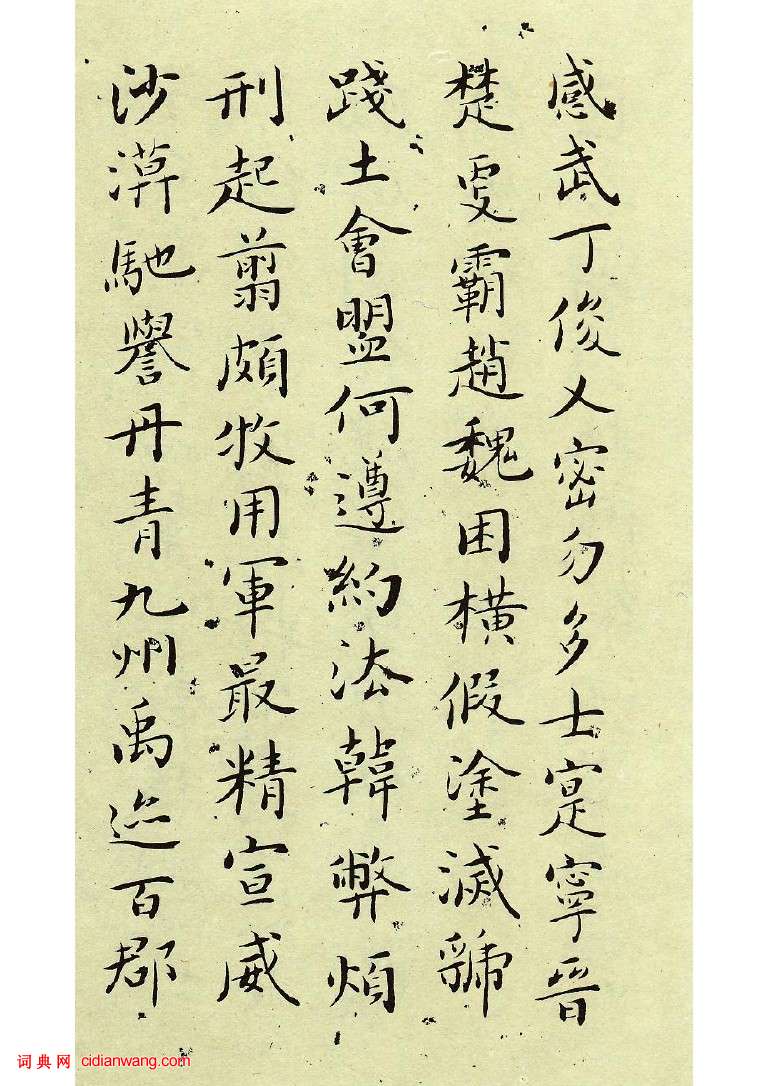 感武丁俊乂密勿多士寔寧晉
楚更霸趙魏困橫假塗滅虢
踐土會盟何遵約法韓弊煩
刑起翦頗牧用軍最精宣威
沙漠馳譽丹青九州禹迹百郡
词典网 cidianwang.com